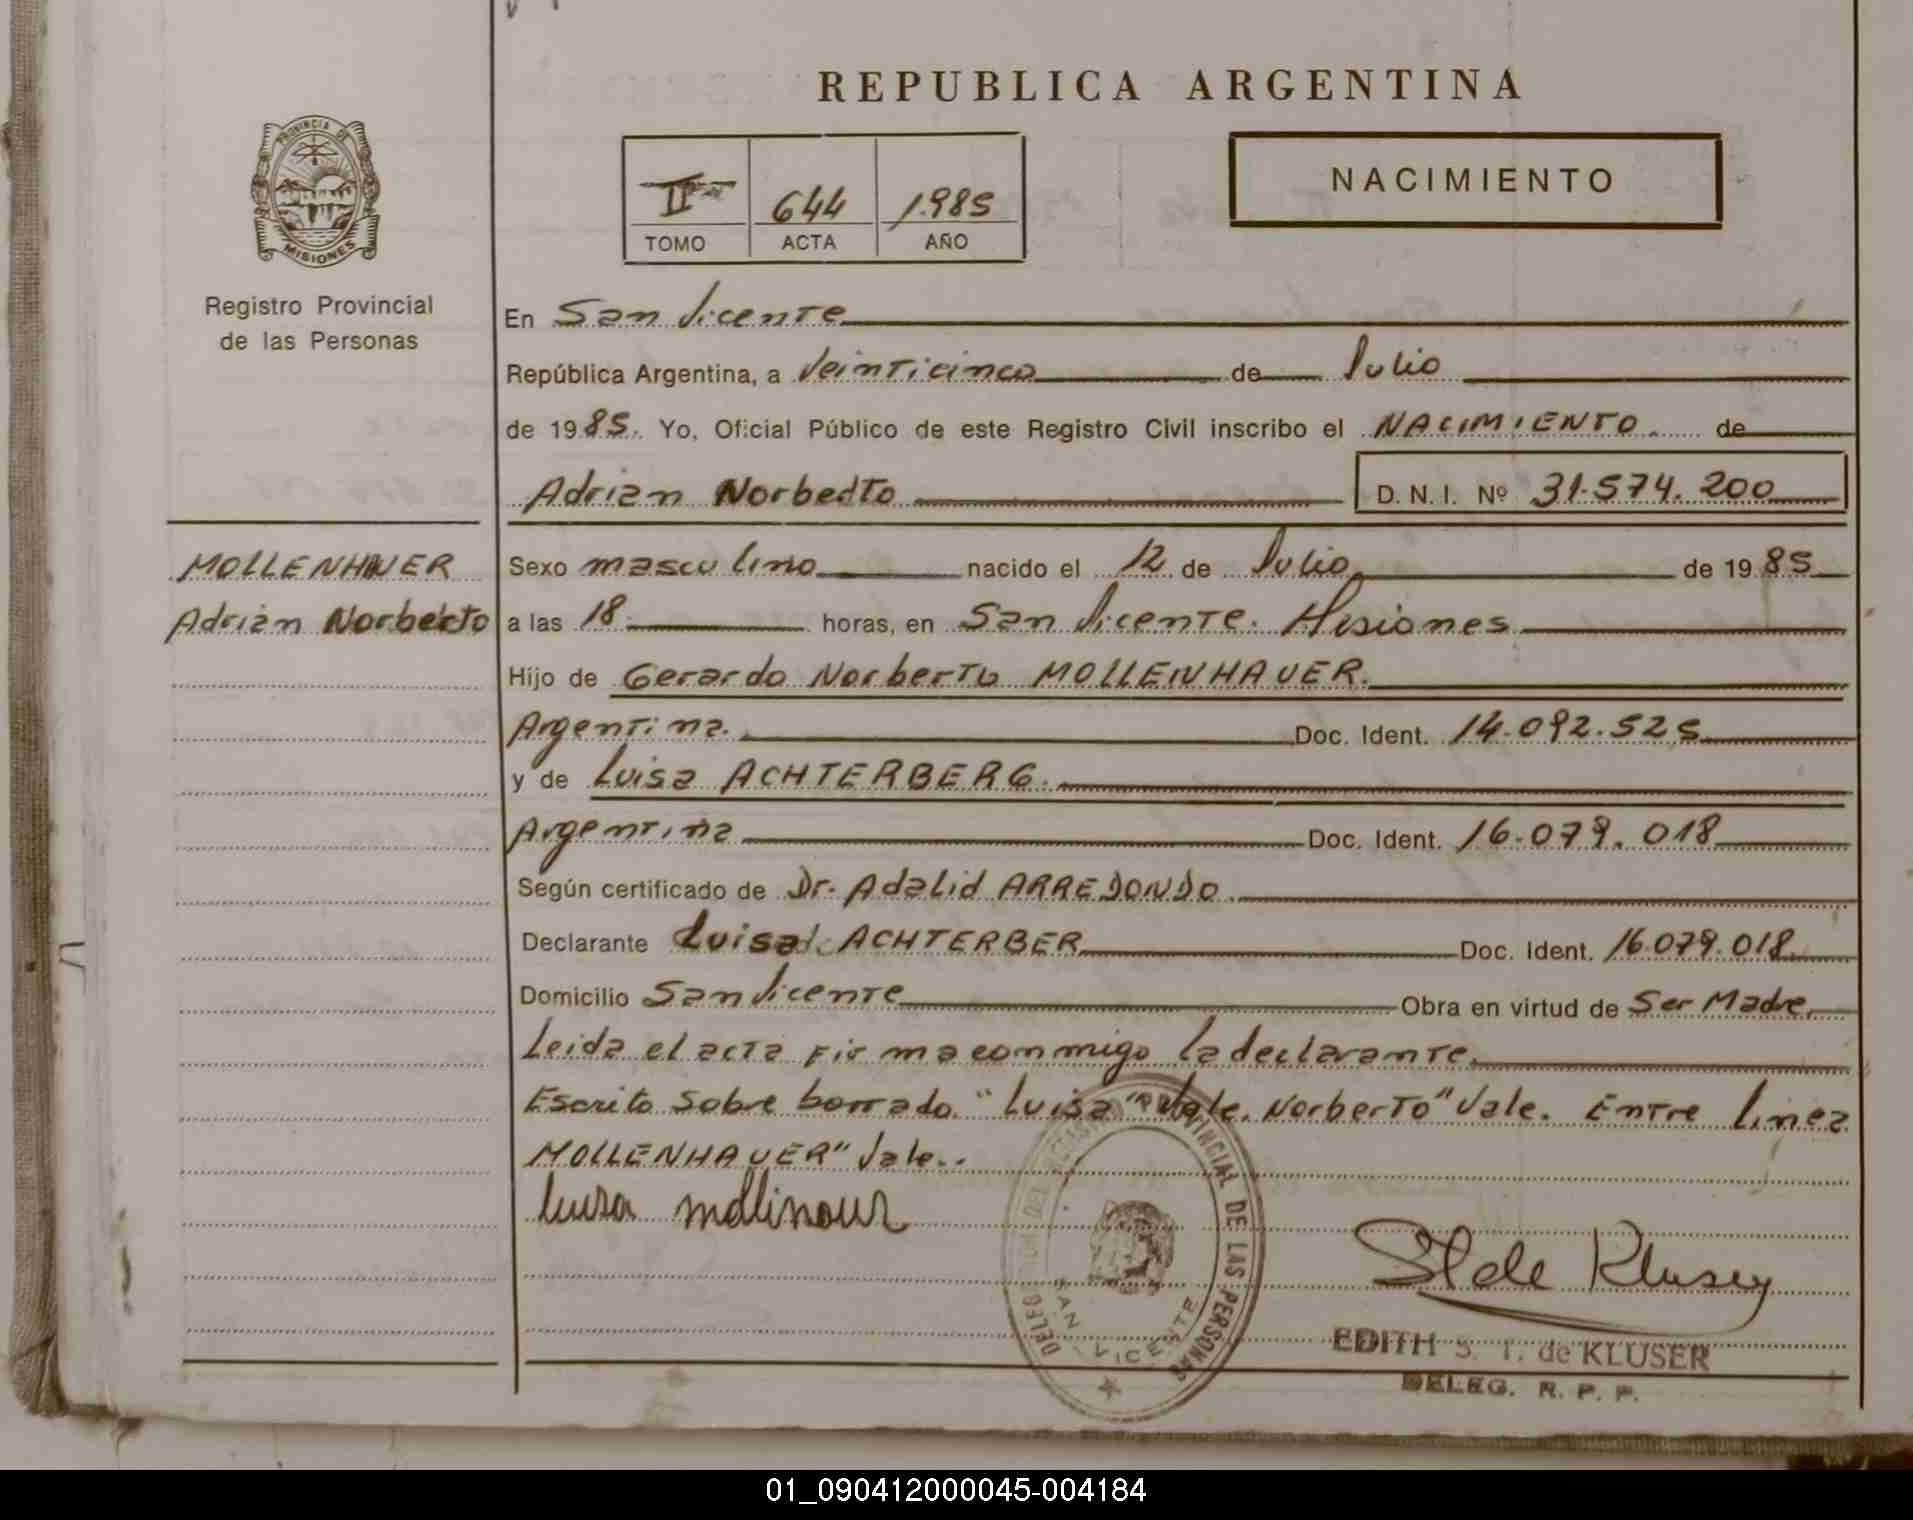 REPUBLICA ARGENTINA
PROVINCIA DE
MISIONES
Registro Provincial
de las Personas
II 644 1985
TOMO ACTA AÑO
NACIMIENTO
En San Vicente
República Argentina, a Veinticinco de Julio
de 1985. Yo, Oficial Público de este Registro Civil inscribo el NACIMIENTO. de
Adrian Norberto D. N. I. Nº 31.574.200
MOLLENHAUER
Adrian Norberto
Sexo masculino nacido el 12 de Julio de 1985
a las 18 horas, en San Vicente. Misiones
Hijo de Gerardo Norberto MOLLENHAUER.
Argentina. Doc. Ident. 14.092.525
y de Luisa ACHTERBERG.
Argentina Doc. Ident. 16.079.018
Según certificado de Dr. Adalid ARREDONDO.
Declarante Luisa de ACHTERBER Doc. Ident. 16.079.018
Domicilio San Vicente Obra en virtud de Ser Madre.
Leida el acta firma conmigo la declarante.
Escrito Sobre borrado. "Luisa" Vale. Norberto" Vale. Entre linea
MOLLENHAUER" Vale..
luisa mollinaur
DEL REGISTRO PROVINCIAL DE LAS PERSONAS
SAN VICENTE
St de Kluser
EDITH S. T. de KLUSER
DELEG. R. P. P.
01_090412000045-004184